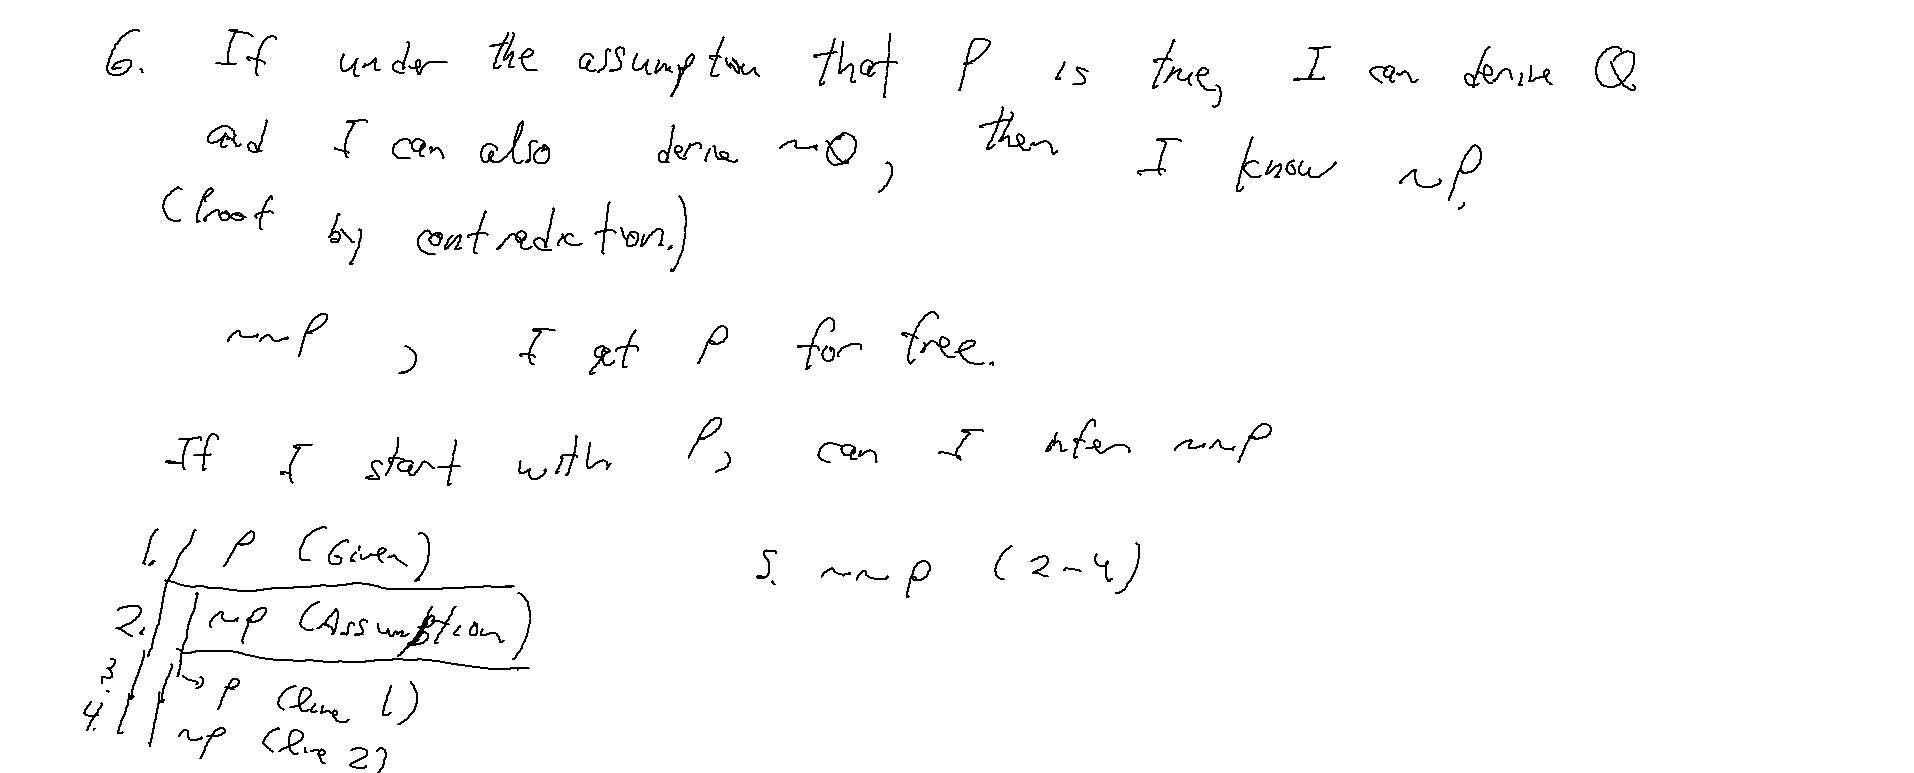 6. If under the assumption that P is true, I can derive Q
and I can also derive ~Q, then I know ~P.
(Proof by contradiction.)
~~P, I get P for free.
If I start with P, can I infer ~~P
1. P (Given)
2. ~P (Assumption)
3. → P (line 1)
4. ~P (line 2)
5. ~~P (2-4)